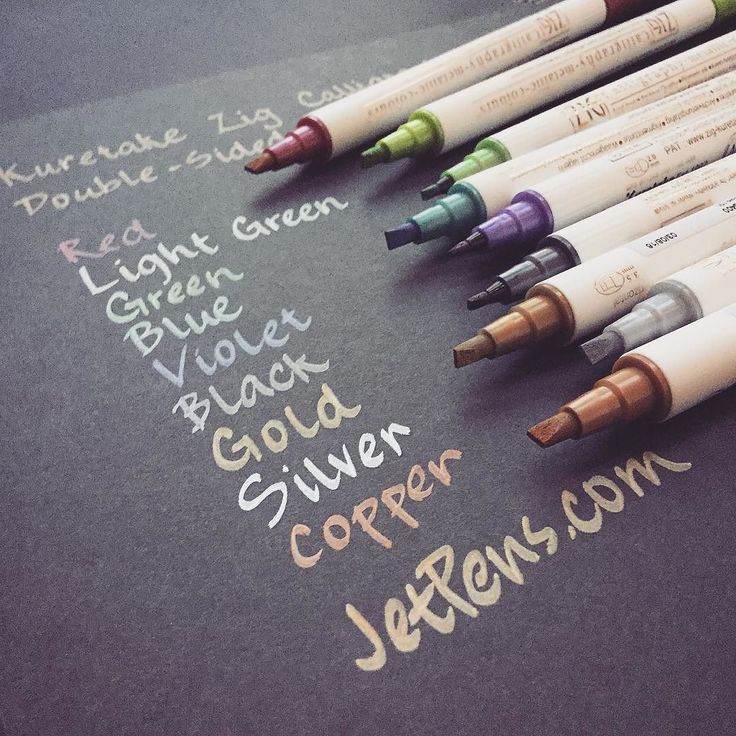 Kuretake Zig
Double-Sided
Red
Light Green
Green
Blue
Violet
Black
Gold
Silver
Copper
JetPens.com
ZIG Calligraphy-metallic-colours
ZIG Calligraphy-metallic-colours
ZIG
PAT
3.5
03/08/16